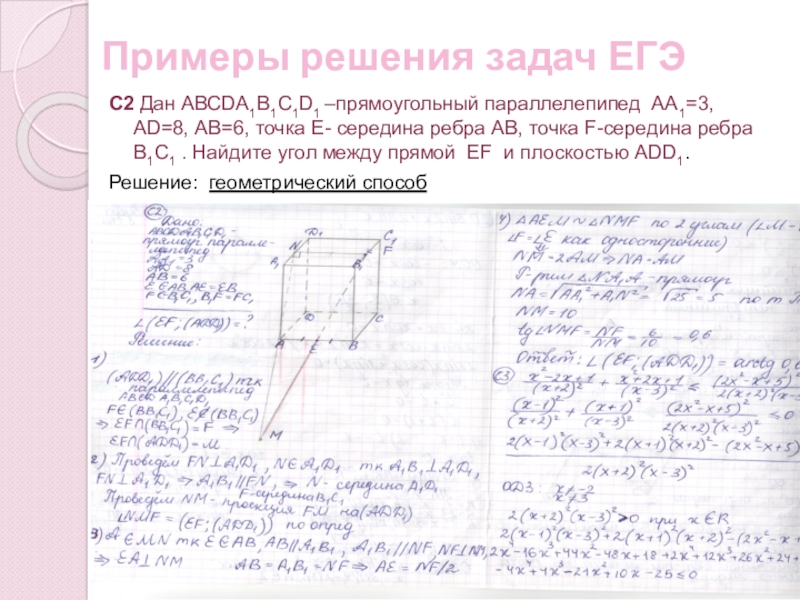 Примеры решения задач ЕГЭ
С2 Дан ABCDA1B1C1D1 –прямоугольный параллелепипед AA1=3,
AD=8, AB=6, точка E- середина ребра AB, точка F-середина ребра
B1C1 . Найдите угол между прямой EF и плоскостью ADD1.
Решение: геометрический способ
С2
Дано:
ABCDA1B1C1D1 -
прямоуг паралле-
лепипед
AA1=3
AD=8
AB=6
E∈AB, AE=EB
F∈B1C1, B1F=FC1
∠(EF;(ADD1))=?
Решение:
D1
C1
N
F
A1
B1
D
C
A
E
B
M
1)
(ADD1)||(BB1C1) тк
параллелепипед
ABCDA1B1C1D1
F∈(BB1C1), E∉(BB1C1)
⇒ EF∩(BB1C1)=F ⇒
EF∩(ADD1)=M
2) Проведём FN⊥A1D1, N∈A1D1 тк A1B1⊥A1D1,
FN⊥A1D1 ⇒ A1B1||FN, F-середина B1C1 ⇒ N- середина A1D1
Проведём NM- проекция FM на (ADD1)
∠NMF = (EF;(ADD1)) по опред
3) A∈MN тк E∈AB, AB||A1B1, A1B1||NF, NF⊥NM
⇒ EA⊥NM AB=A1B1=NF ⇒ AE=NF/2
4) △AEM∼△NMF по 2 углам (∠M-
∠F=∠E как односторонние)
NM=2AM ⇒ NA=AM
△NA1A-прямоуг
NA=√AA1²+A1N²=√25=5 по т
NM=10
tg∠NMF=NF/NM=6/10=0,6
Ответ: ∠(EF;(ADD1))=arctg 0,
С3 x²-2x+1/(x+2)² + x²+2x+1/(x-3)² ≤ (2x²-x+5)²/2(x+2)²(x-3)
(x-1)²/(x+2)² + (x+1)²/(x-3)² - (2x²-x+5)²/2(x+2)²(x-3)² ≤0
2(x-1)²(x-3)²+2(x+1)²(x+2)²-(2x²-x+5)²
2(x+2)²(x-3)²
ОДЗ: x≠-2
x≠3
2(x+2)²(x-3)²>0 при x∈R
2(x-1)²(x-3)²+2(x+1)²(x+2)²-(2x²-x+
2x⁴-16x³+44x²-48x+18+2x⁴+12x³+26x²+24+
-4x⁴+4x³-21x²+10x-25≤0